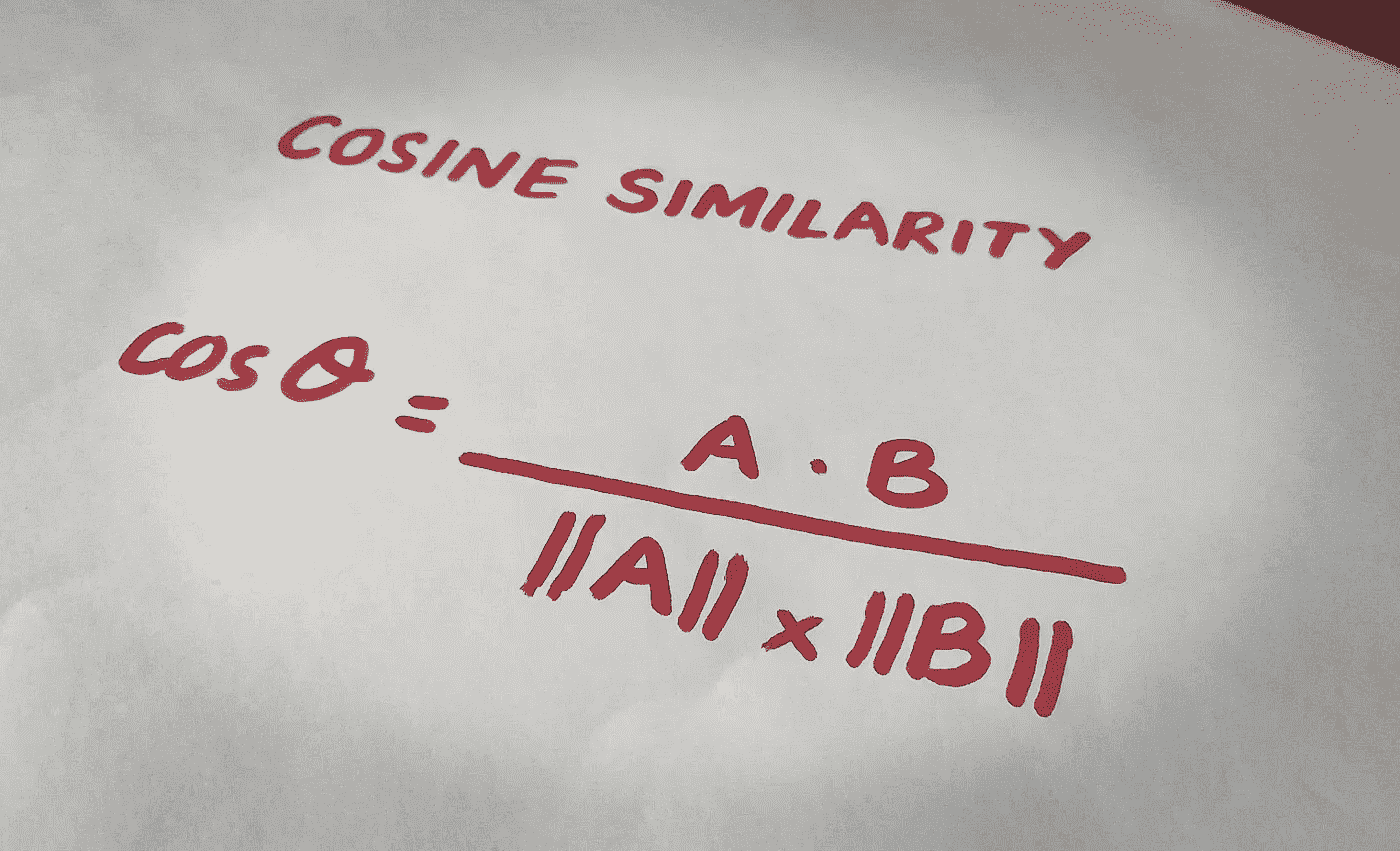 COSINE SIMILARITY
cos θ =
A · B
||A|| x ||B||